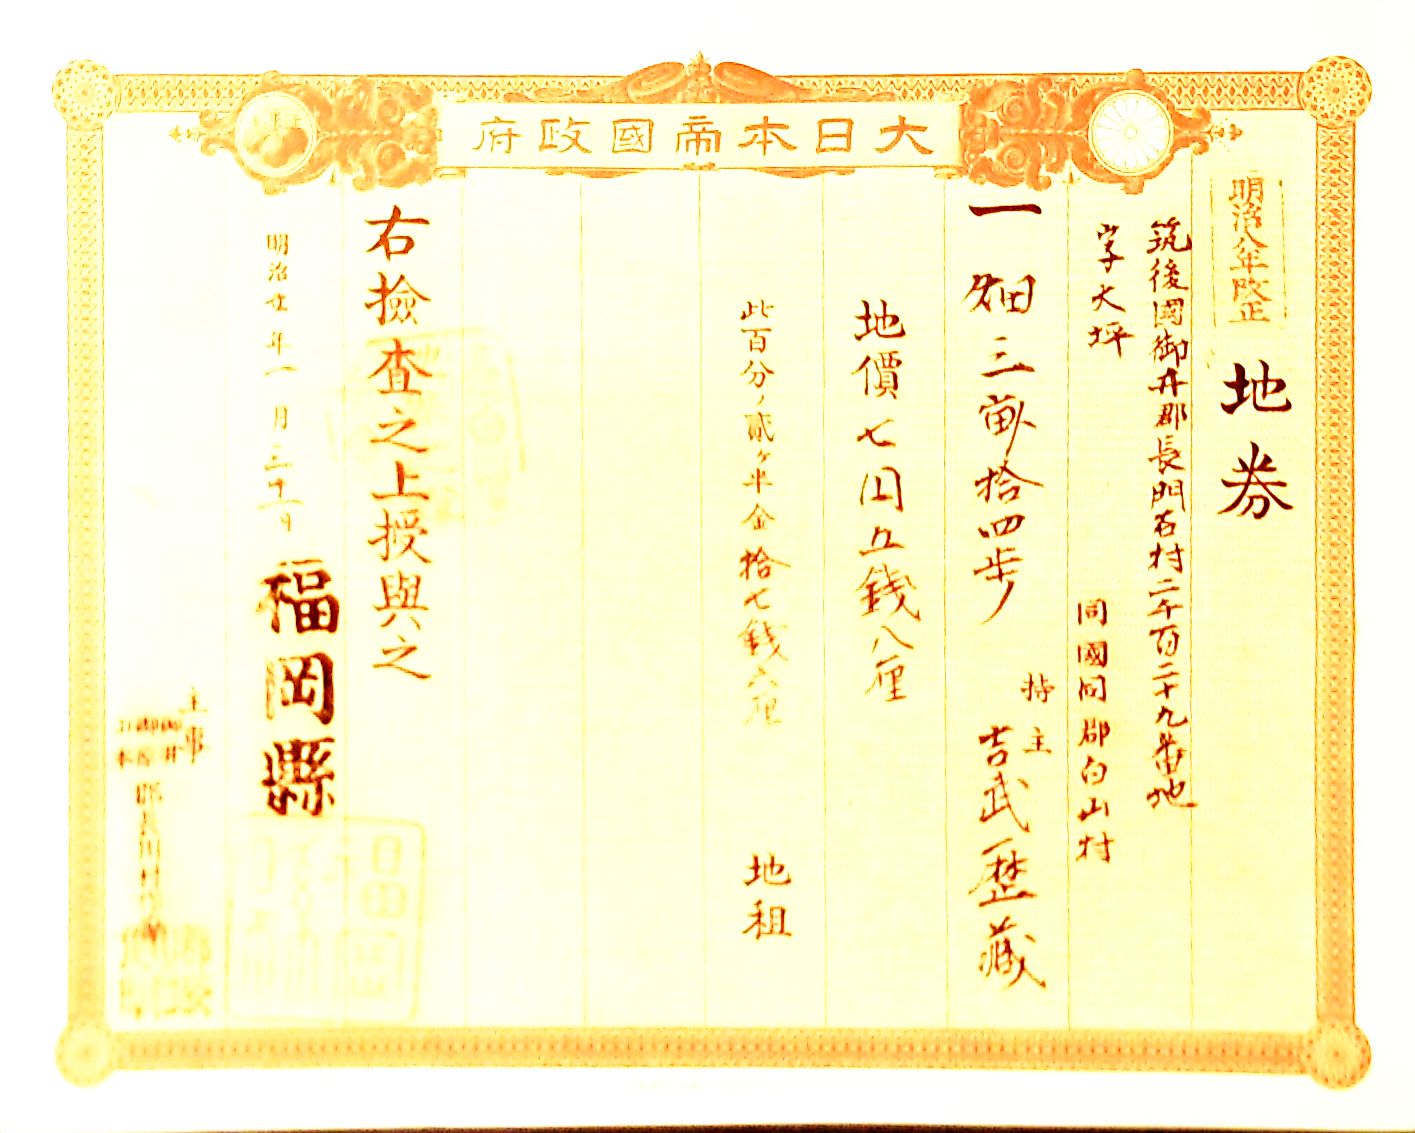 大日本帝國政府
明治八年改正
地券
筑後國御井郡長門石村二千百二十九番地
字大坪
同國同郡白山村
持主
吉武歴蔵
一畑三畝拾四歩
地價七円五錢八厘
此百分ノ貳ケ半金拾七錢六厘
地租
右撿査之上授與之
明治 年一月三十一日
福岡縣
主事
御井
御原
山本
郡長